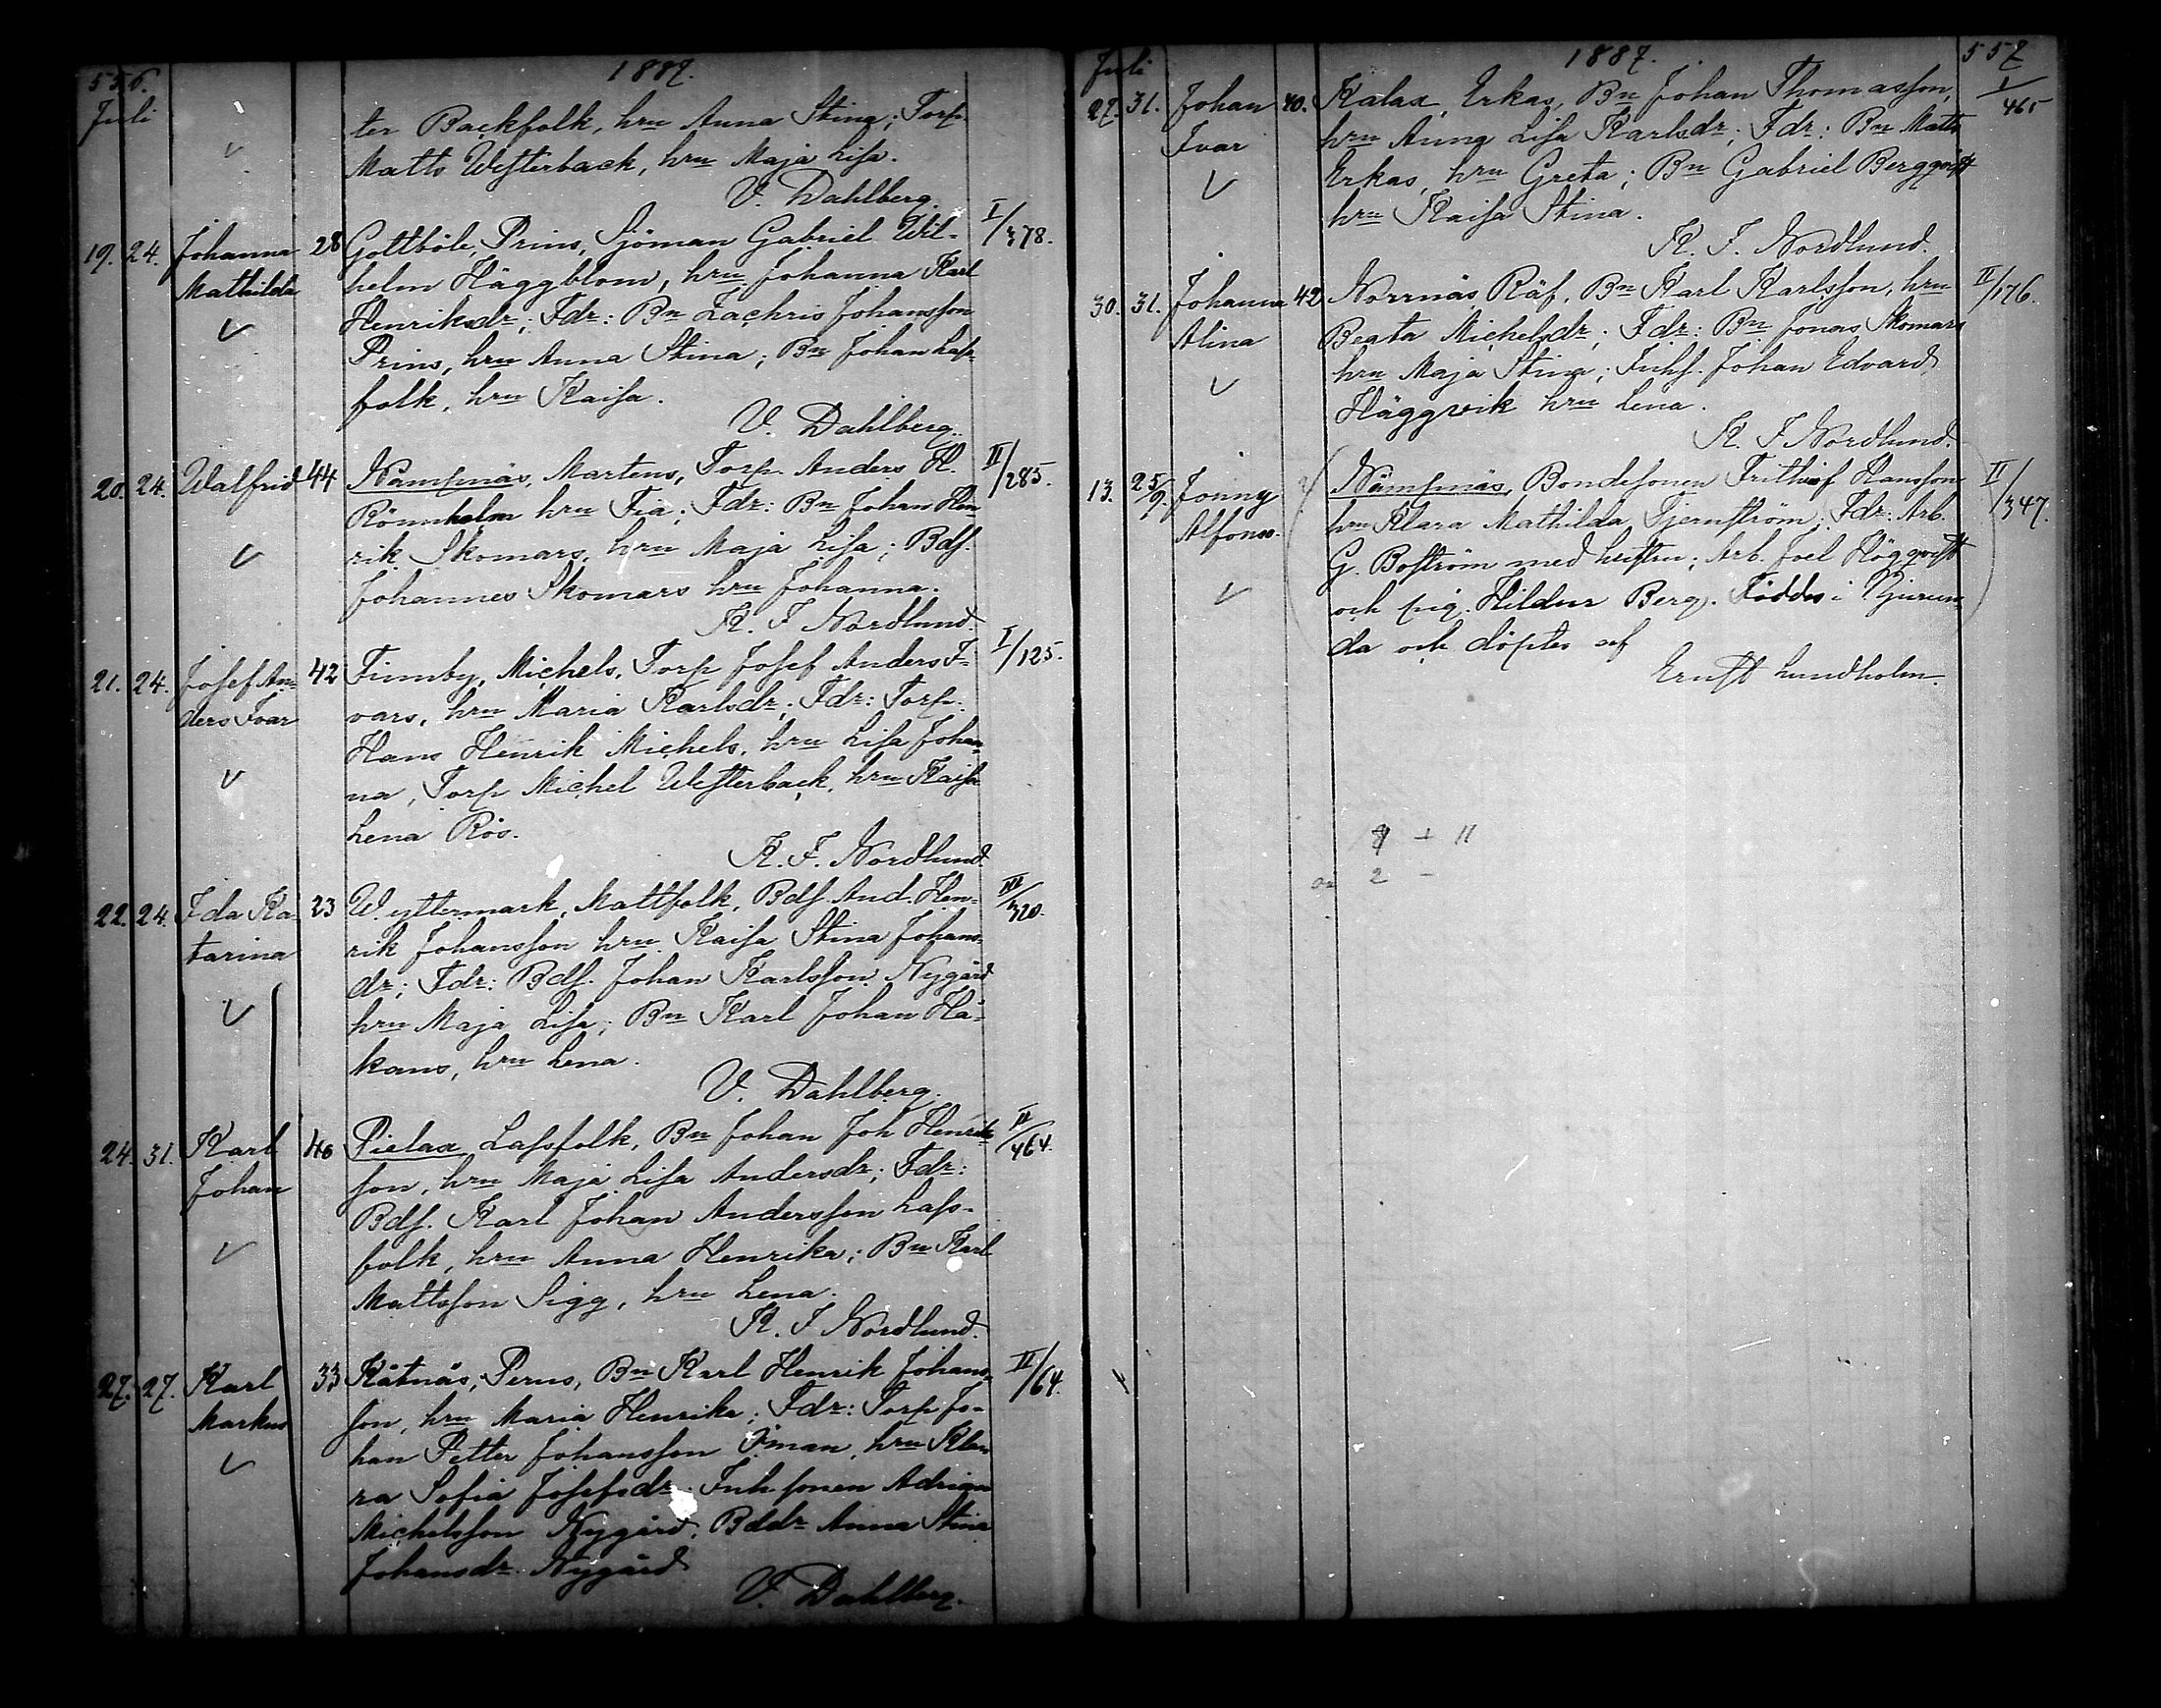 556.
1887.
Juli
ter Backfolk, hru Anna Stina; Torp.
Matts Westerback, hru Maja Lisa.
V. Dahlberg.
19. 24. Johanna Mathilda 28 Gottböle, Prins, Sjöman Gabriel Wil- I/378.
helm Häggblom, hru Johanna Karl
Henriksdr; Fdr: Bn Zachris Johansson
Prins, hru Anna Stina; Bn Johan Lass-
folk, hru Kaisa.
V. Dahlberg.
20. 24. Walfrid 44 Nämpnäs, Martens, Torp. Anders H. II/285.
Rönnholm hru Fia; Fdr: Bn Johan Hen-
rik Skomars, hru Maja Lisa; Bds.
Johannes Skomars hru Johanna.
K. F. Nordlund.
21. 24. Josef An- 42 Finnby, Michels, Torp Josef Anders I- I/125.
ders Ivar
vars, hru Maria Karlsdr; Fdr: Torp.
Hans Henrik Michels, hru Lisa Johan-
na, Torp Michel Westerback, hru Kaisa
Lena Rös.
K. F. Nordlund.
22. 24. Ida Ka- 23 W. yttermark, Mattfolk, Bds. And. Hen- III/320.
tarina
rik Johansson hru Kaisa Stina Johans-
dr; Fdr: Bds. Johan Karlsson Nygård
hru Maja Lisa; Bn Karl Johan Hå-
kans, hru Lena.
V. Dahlberg.
24. 31. Karl Johan 40 Pielax Lassfolk, Bn Johan Joh Henriks- II/464.
son, hru Maja Lisa Andersdr; Fdr:
Bds. Karl Johan Andersson Lass-
folk, hru Anna Henrika; Bn Karl
Mattsson Sigg, hru Lena.
K. F. Nordlund.
27. 27. Karl Markus 33 Kåtnäs, Perus, Bn Karl Henrik Johans- II/64.
son, hru Maria Henrika; Fdr: Torp Jo-
han Petter Johansson Öman, hru Kla-
ra Sofia Josefsdr. Inhsonen Adrian
Michelsson Nygård, Bddr Anna Stina
Johansdr Nygård
V. Dahlberg.
557
1887.
Juli
27. 31. Johan Ivar 40. Kalax, Erkas, Bn Johan Thomasson, I/465
hru Anna Lisa Karlsdr; Fdr: Bn Matts
Erkas, hru Greta; Bn Gabriel Bergqvist
hru Kaisa Stina.
K. F. Nordlund.
30. 31. Johanna Alina 42 Norrnäs Räf, Bn Karl Karlsson, hru II/176.
Beata Michelsdr; Fdr: Bn Jonas Skomars
hru Maja Stina; Inhs. Johan Edvard
Häggvik hru Lena.
K. F Nordlund.
13. 25/9. Jonny Alfons. Nämpnäs, Bondesonen Frithiof Hansson II/347.
hru Klara Mathilda Tjernström; Fdr: Arb.
G. Boström med hustru; Arb. Joel Höggqvist
och pig. Hildur Berg. Föddes i Njurun-
da och döptes af
Ernst Lundholm.
9 + 11
2 -